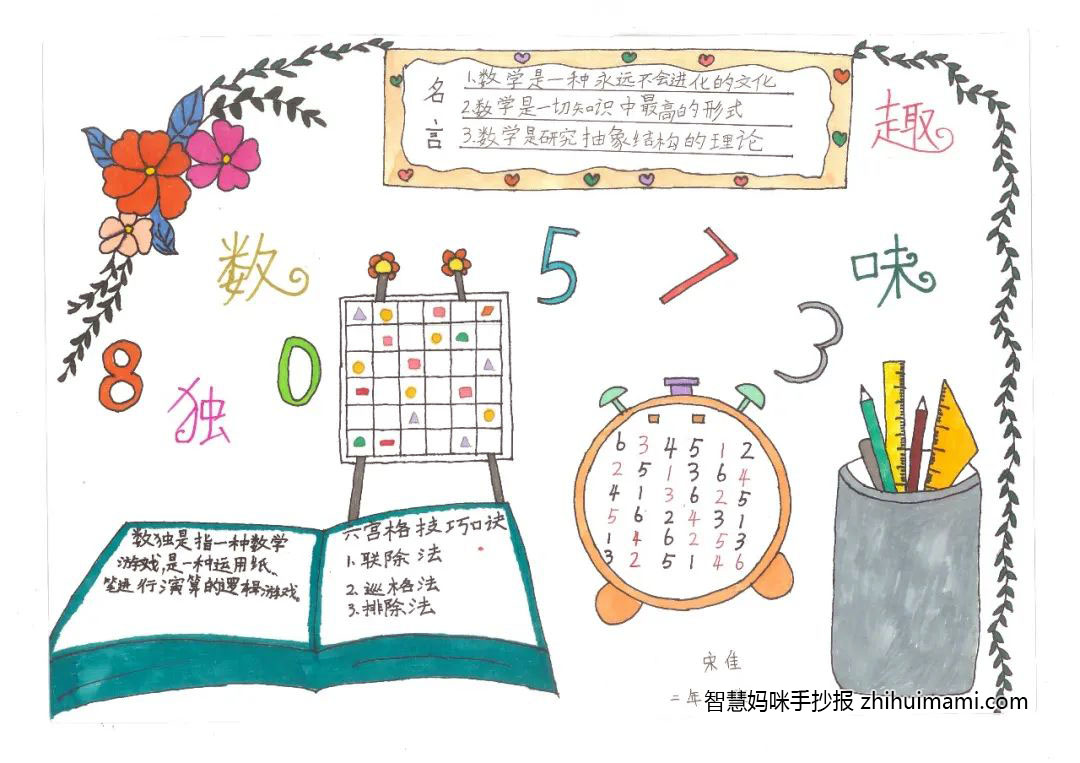 名言
1.数学是一种永远不会进化的文化
2.数学是一切知识中最高的形式
3.数学是研究抽象结构的理论
趣
味
数
独
5
7
3
8
0
数独是指一种数学
游戏,是一种运用纸、
笔进行演算的逻辑游戏。
六宫格技巧口诀
1.联除法
2.巡格法
3.排除法
6 3 4 5 1 2
2 5 1 3 6 4
4 1 3 6 2 5
5 6 2 4 3 1
1 4 6 2 5 3
3 2 5 1 4 6
宋佳
二年
智慧妈咪手抄报 zhihuimami.com